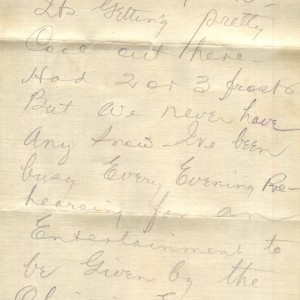 Its Getting pretty
Cool out here -
Had 2 or 3 frosts
But we never have
Any Snow - I've been
busy Every Evening Re-
hearsing for an
Entertainment to
be Given by the